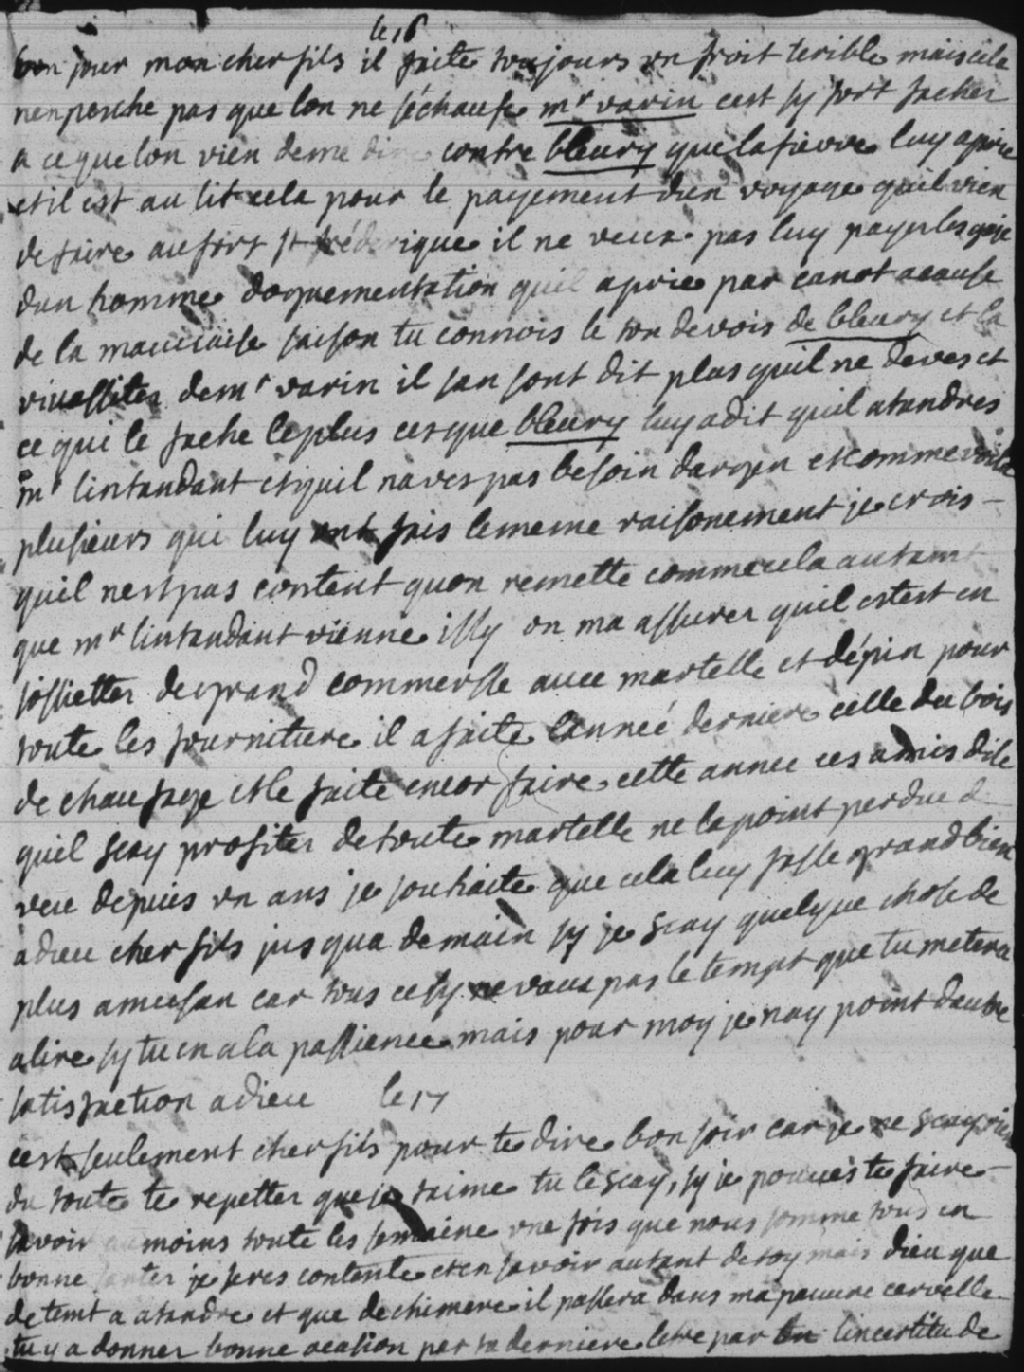 le 16
bon jour mon cher fils il faite toujours un froit terible mais cela
nenpesche pas que lon ne séchaufe mr varin cest sy fort facher
a ce que lon vien deme dire contre bleury que la fievre luy a prie
et il est au lit cela pour le payement dun voyage quil vien
de faire au fort st fréderique il ne veux pas luy payer les gaje
dun homme dogmentation quil a prie par canot a cause
de la mauvaise saison tu connois le ton de vois de bleury et la
vivassiter de mr varin il san sont dit plus quil ne deves et
ce qui le fache le plus ces que bleury luy a dit quil atandres
mr lintandant et quil naves pas besoin dargen et comme voila
plusieurs qui luy ont fais le meme raisonement je crois
quil nest pas content quon remette comme cela autant
que mr lintandant vienne issy on ma assurer quil estest en
sossietter de grand commersse avec martelle et dépin pour
toute les fourniture il a faite lanneé derniere celle du bois
de chaufage et le faite encor faire cette annee ces amis dise
quil scay profiter de toute martelle ne la point perdue de
veue depuis un ans je souhaite que cela luy fasse grand bien
adieu cher fils jusqua demain sy je scay quelque chose de
plus amusan car tous cesy ne vaux pas le tempt que tu metera
a lire sy tu en a la passience mais pour moy je nay point dautre
satisfaction adieu le 17
cest seulement cher fils pour te dire bon soir car je ne scay rien
du toute te repetter que je taime tu le scay, sy je pouves te faire
savoir au moins toute les semaine une fois que nous somme tous en
bonne santer je seres contente et en savoir autant de toy mais dieu que
de temt a atandre et que de chimere il passera dans ma pauvre cervelle
tu y a donner bonne ocasion par ta derniere letre par lincertitude